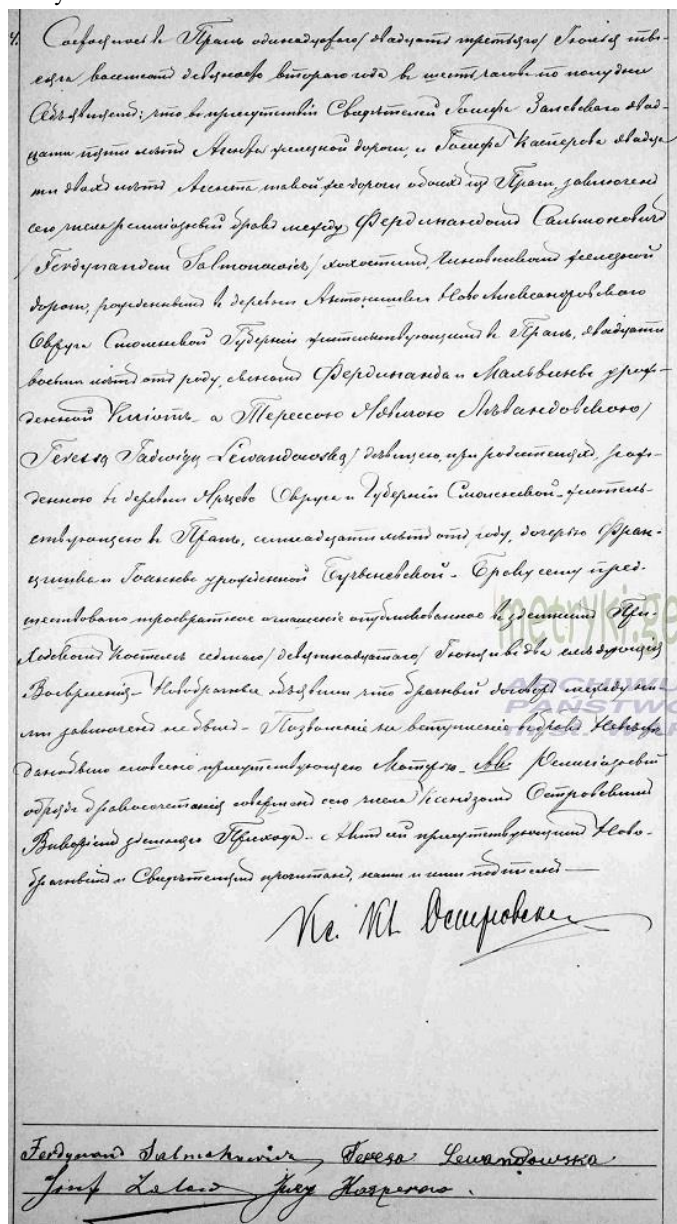 Состоялось въ Прагѣ одинадцатаго/двадцать третьяго/ Іюля мѣ-
сяца восемсотъ девяносто втораго года въ шесть часовъ по полудни
Объявляемъ: что въ присутствіи Свидѣтелей Іосифа Залевскаго двад-
цати пяти лѣтъ Агента желѣзной дороги, и Іосифа Касперова двадца
ти двухъ лѣтъ Агента такой же дороги обоихъ изъ Праги, заключенъ
сего числа религіозный бракъ между Фердинандомъ Сальмоновичемъ
/Ferdynandem Salmonowicz/ холостымъ, Чиновникомъ желѣзной
дороги, рожденнымъ въ деревни Ново Александровскаго
Округа Смоленской Губерніи жительствующимъ въ Прагѣ, двадцати
восьми лѣтъ отъ роду, сыномъ Фердинанда и Мальвины урож-
денной - а Терессою Ядвигою Левандовскою/
Teressą Jadwigą Lewandowską/ дѣвицею, при родителяхъ, рож-
денною въ деревни Ярцево Округа и Губерніи Смоленской - житель-
ствующею въ Прагѣ, семнадцати лѣтъ отъ роду, дочерью Фран-
цишка и Іоанны урожденной - Браку сему пред-
шествовало троекратное оглашеніе опубликованное въ здешнемъ При-
ходскомъ Костелѣ седмаго/девятнадцатаго/ Іюня и въ два слѣдующія
Воскресенія - Новобрачные объявили что брачный договоръ между ни-
ми заключенъ не былъ - Позволеніе на вступленіе въ бракъ Невѣсте
дано было словесно присутствующею Матерью - Религіозный
обрядъ бракосочетанія совершенъ сего числа Ксендзомъ Островскимъ
Викаріемъ здешняго Прихода - Актъ сей присутствующимъ Ново-
брачнымъ и Свидѣтелямъ прочитанъ, нами и ими подписанъ -
Кс. Островски
metryki.ge
ARCHIWU
PAŃSTWO
Ferdynand Salmonowicz, Teresa Lewandowska